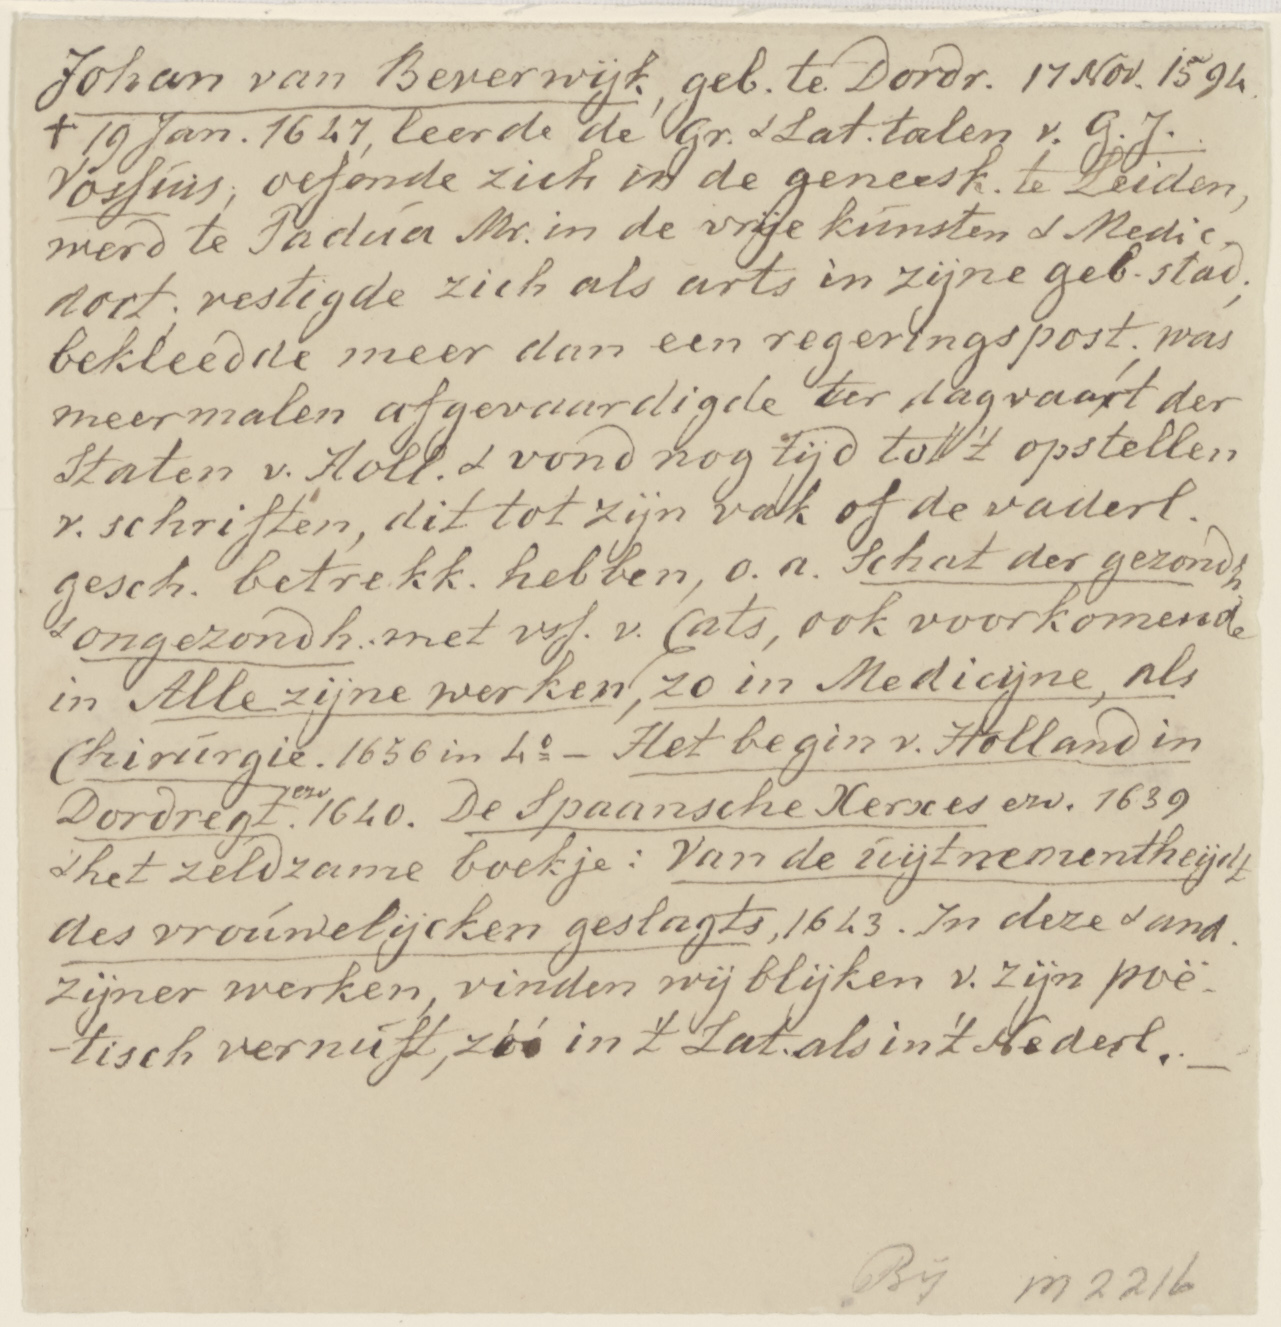 Johan van Beverwijk, geb. te Dordr. 17 Nov. 1594.
† 19 Jan. 1647, leerde de Gr. & Lat. talen v. G. J.
Vossius, oefende zich in de geneesk. te Leiden,
werd te Padua Mr. in de vrije kunsten & Medic.
doct., vestigde zich als arts in zijne geb. stad,
bekleedde meer dan een regeringspost, was
meermalen afgevaardigde ter dagvaart der
Staten v. Holl. & vond nog tijd tot 't opstellen
v. schriften, dit tot zijn vak of de vaderl.
gesch. betrekk. hebben, o. a. Schat der gezondh
& ongezondh. met vss. v. Cats, ook voorkomende
in Alle zijne werken, zo in Medicijne, als
Chirurgie. 1656 in 4º – Het begin v. Holland in
Dordregt. enz 1640. De Spaansche Xerxes enz. 1639
& het zeldzame boekje: Van de uijtnementheijdt
des vrouwelijcken geslagts, 1643. In deze & and.
zijner werken, vinden wij blijken v. zijn poë-
-tisch vernuft, zóó in 't Lat. als in 't Nederl. —
Bij m 2216